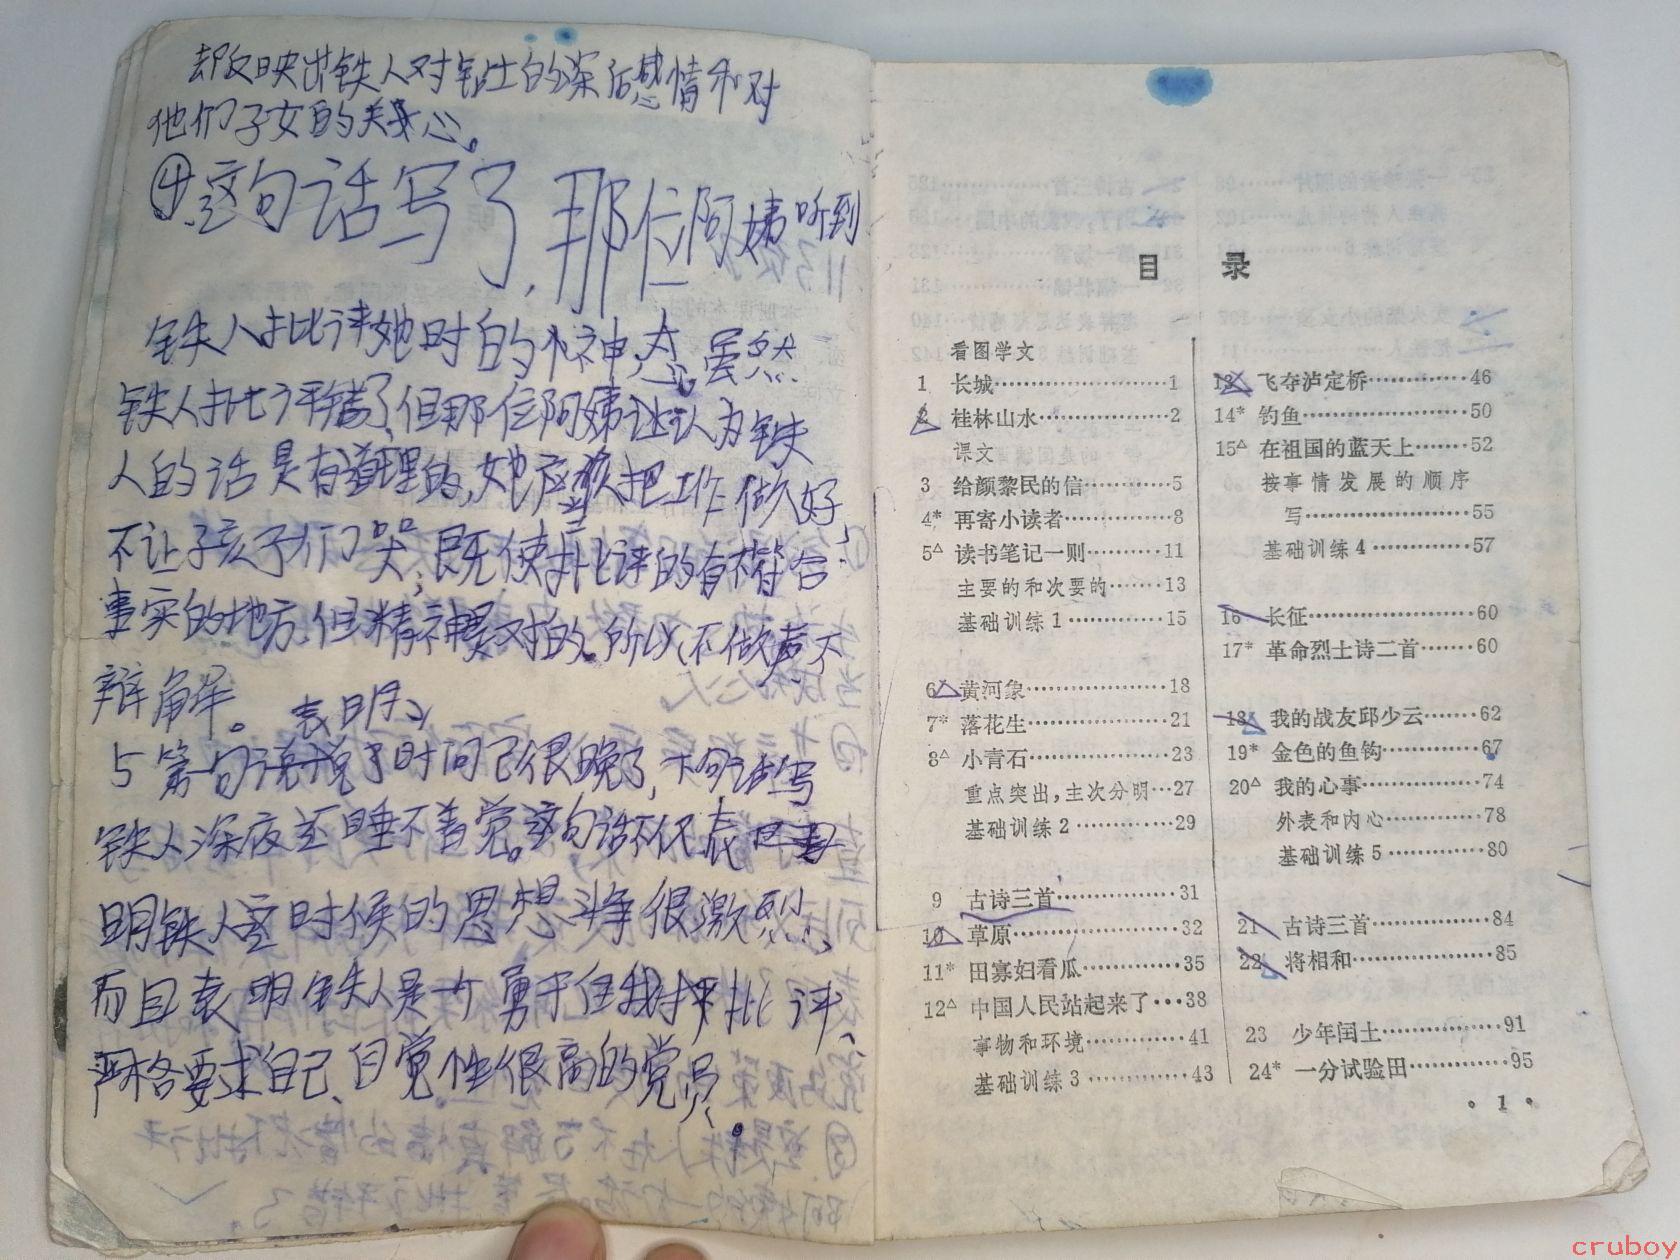 却反映出铁人对钻工的深厚感情和对
他们子女的关心。
④这句话写了,那位阿姨听到
铁人批评她时的神态。虽然
铁人批评错了,但那位阿姨还认为铁
人的话是有道理的,她应该把工作做好,
不让孩子们哭,既使批评的有不符合
事实的地方,但精神是对的。所以不做声不
辩解。表明
5第一句说了时间已很晚了,句话写
铁人深夜还睡不着觉。这句话不仅表
明铁人这时候的思想斗争很激烈,
而且表明铁人是一个勇于自我批评、
严格要求自己、自觉性很高的党员。
目 录
看图学文
1 长城…………………1
2 桂林山水……………2
课文
3 给颜黎民的信…………5
4* 再寄小读者……………8
5△ 读书笔记一则…………11
主要的和次要的………13
基础训练1……………15
6 黄河象………………18
7* 落花生………………21
8△ 小青石………………23
重点突出,主次分明…27
基础训练2……………29
9 古诗三首……………31
10 草原…………………32
11* 田寡妇看瓜……………35
12△ 中国人民站起来了…38
事物和环境……………41
基础训练3……………43
13 飞夺泸定桥……………46
14* 钓鱼…………………50
15△ 在祖国的蓝天上………52
按事情发展的顺序
写……………………55
基础训练4……………57
16 长征…………………60
17* 革命烈士诗二首………60
18 我的战友邱少云………62
19* 金色的鱼钩……………67
20△ 我的心事………………74
外表和内心……………78
基础训练5……………80
21 古诗三首………………84
22 将相和…………………85
23 少年闰土………………91
24* 一分试验田……………95
• 1 •
cruboy